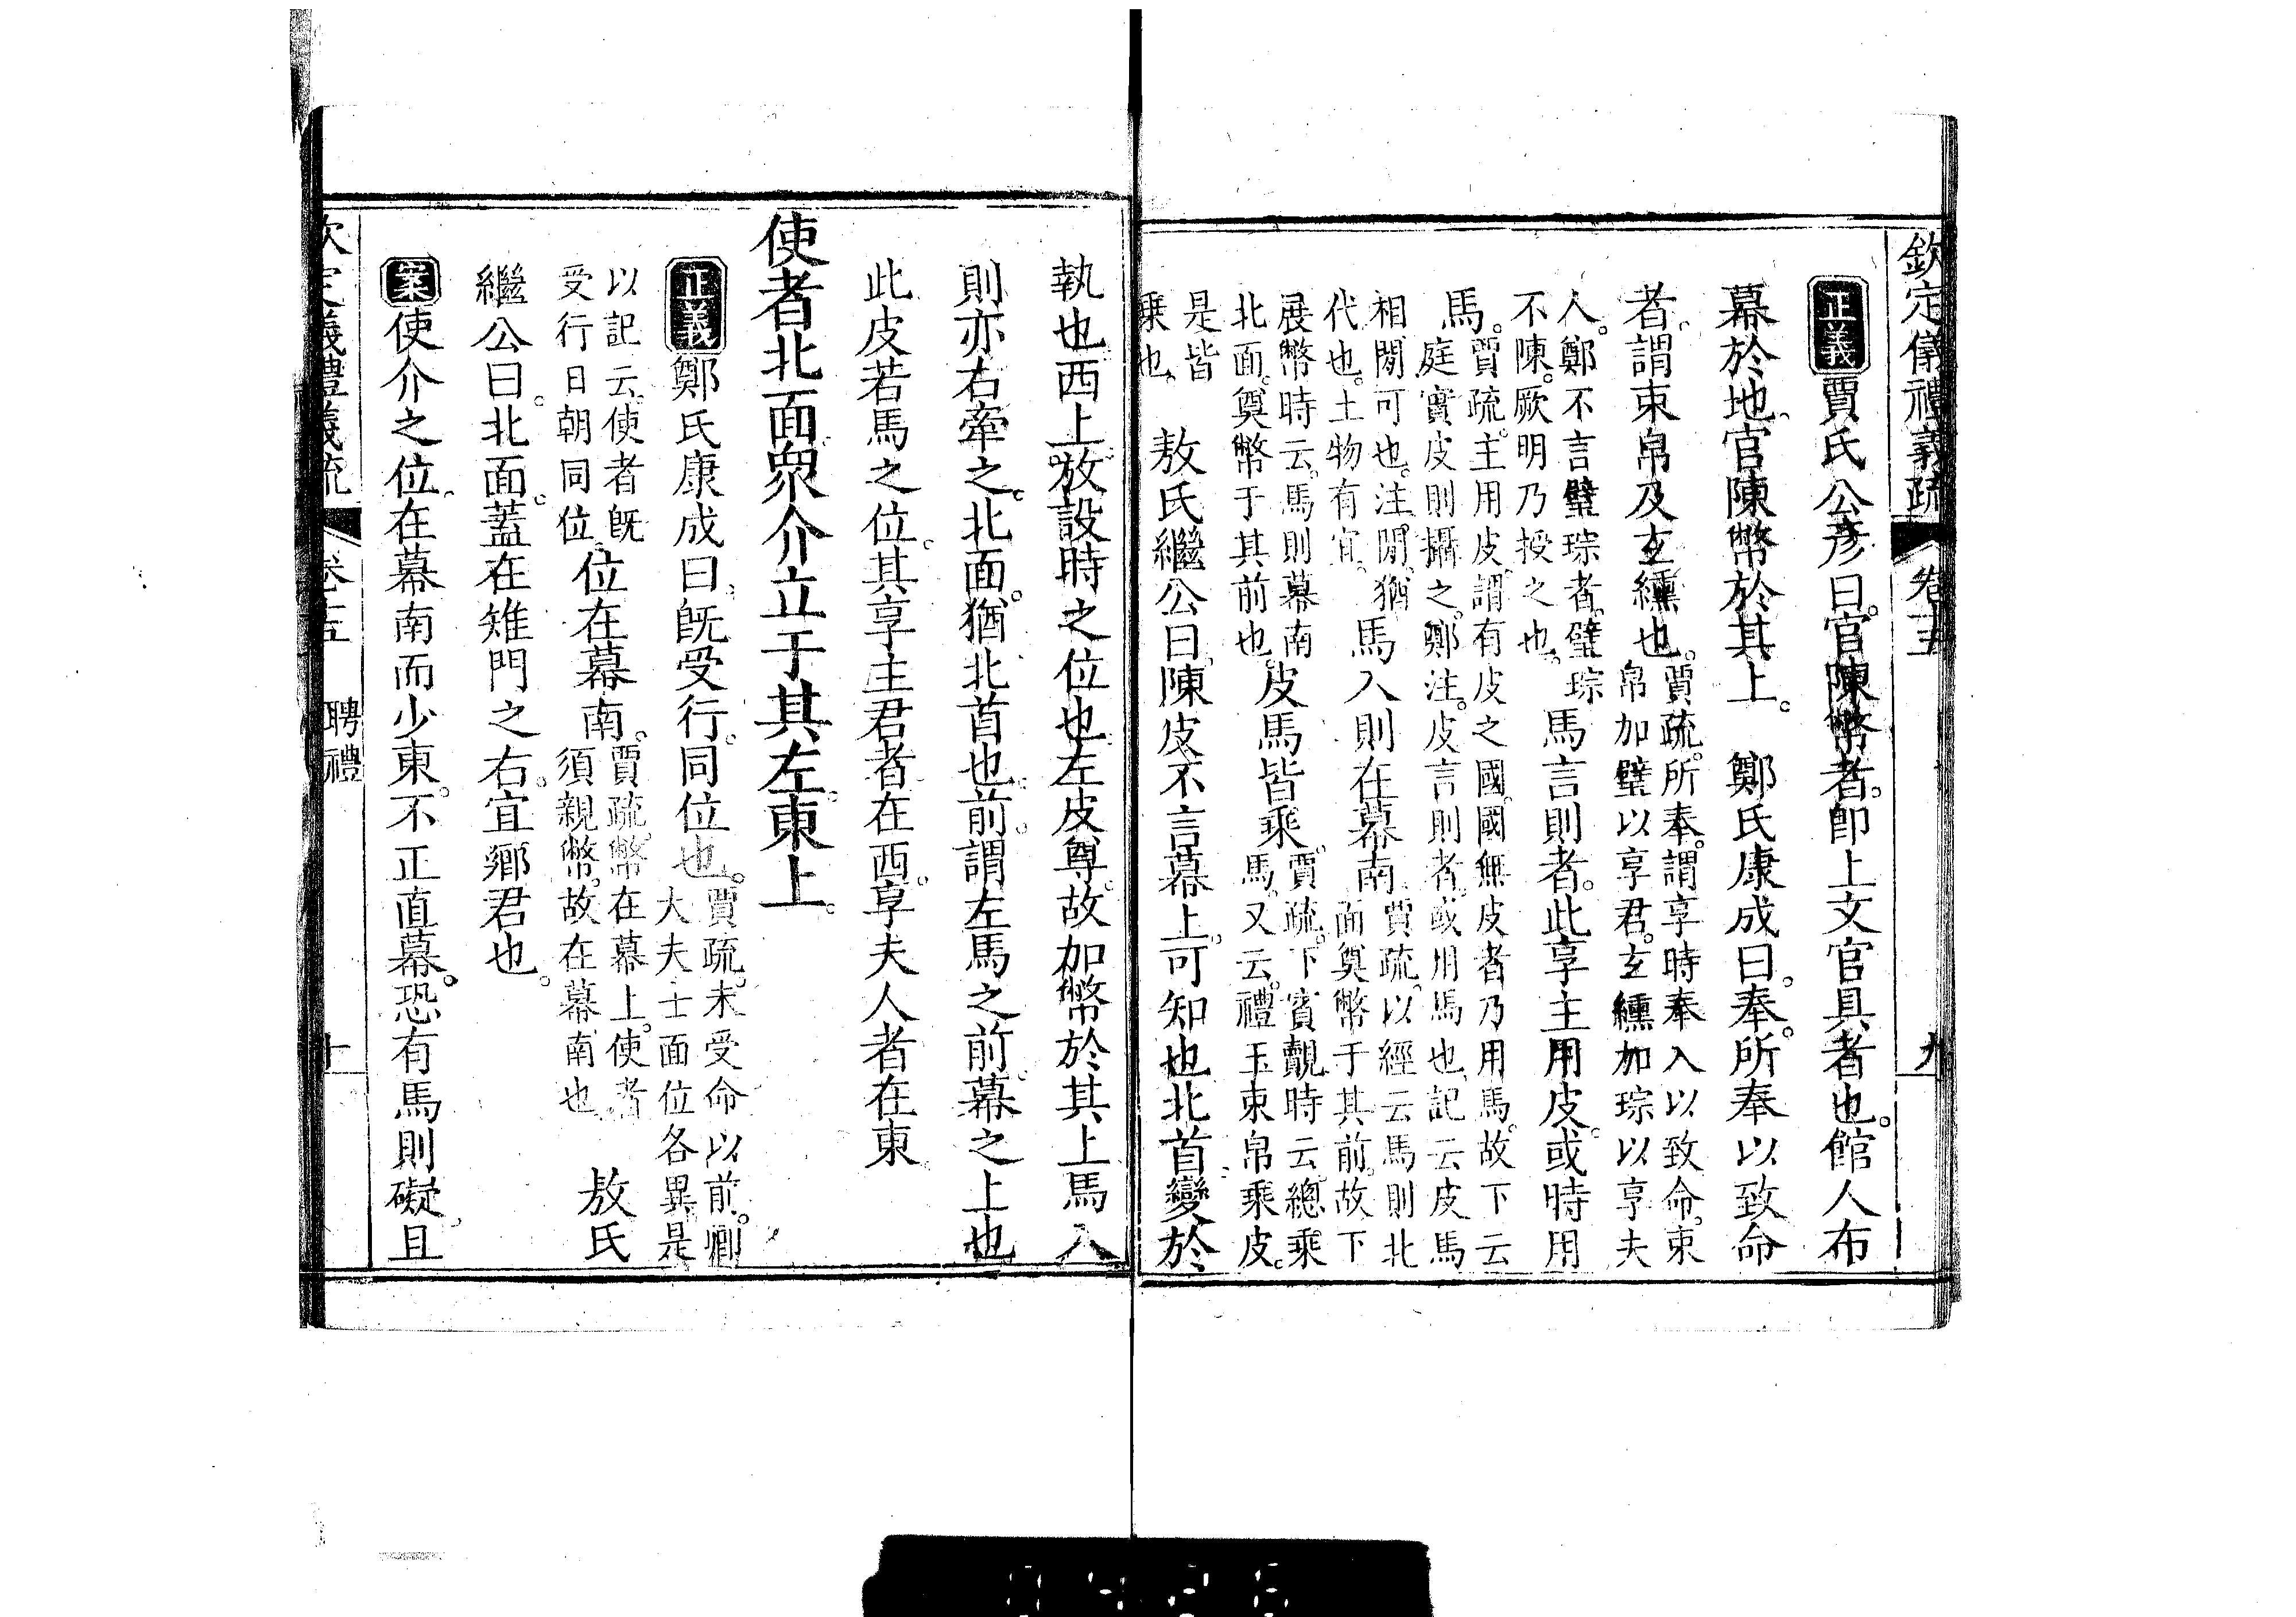 欽定儀禮義疏 卷十五 九
正義賈氏公彥曰。官陳幣者。卽上文官具者也。館人布
幕於地。官陳幣於其上。 鄭氏康成曰。奉。所奉以致命
者。謂束帛及玄纁也。賈疏。所奉。謂享時奉入以致命。束帛加璧以享君。玄纁加琮以享夫
人。鄭不言璧琮者。璧琮不陳。厥明乃授之也。馬言則者。此享主用皮。或時用
馬。賈疏。主用皮。謂有皮之國。國無皮者乃用馬。故下云庭實皮則攝之。鄭注。皮言則者。或用馬也。記云皮馬
相閒可也。注。閒。猶代也。土物有宜。馬入則在幕南賈疏。以經云馬則北面奠幣于其前。故下
展幣時云。馬則幕南北面。奠幣于其前也。皮馬皆乘。賈疏。下賓覿時云。總乘馬。又云。禮玉束帛乘皮。
是皆乘也。 敖氏繼公曰。陳皮不言幕上。可知也。北首變於
執也。西上。放設時之位也。左皮尊。故加幣於其上。馬入
則亦右牽之。北面。猶北首也。前。謂左馬之前。幕之上也。
此皮若馬之位。其享主君者在西。享夫人者在東。
使者北面。眾介立于其左。東上。
正義鄭氏康成曰。旣受行。同位也。賈疏。未受命以前。卿大夫士面位各異。是
以記云。使者旣受行日。朝同位。位在幕南。賈疏。幣在幕上。使者須親幣。故在幕南也。 敖氏
繼公曰。北面。蓋在雉門之右。宜鄉君也。
案使介之位。在幕南而少東。不正直幕。恐有馬則礙。且
欽定儀禮義疏 卷十五 聘禮 十